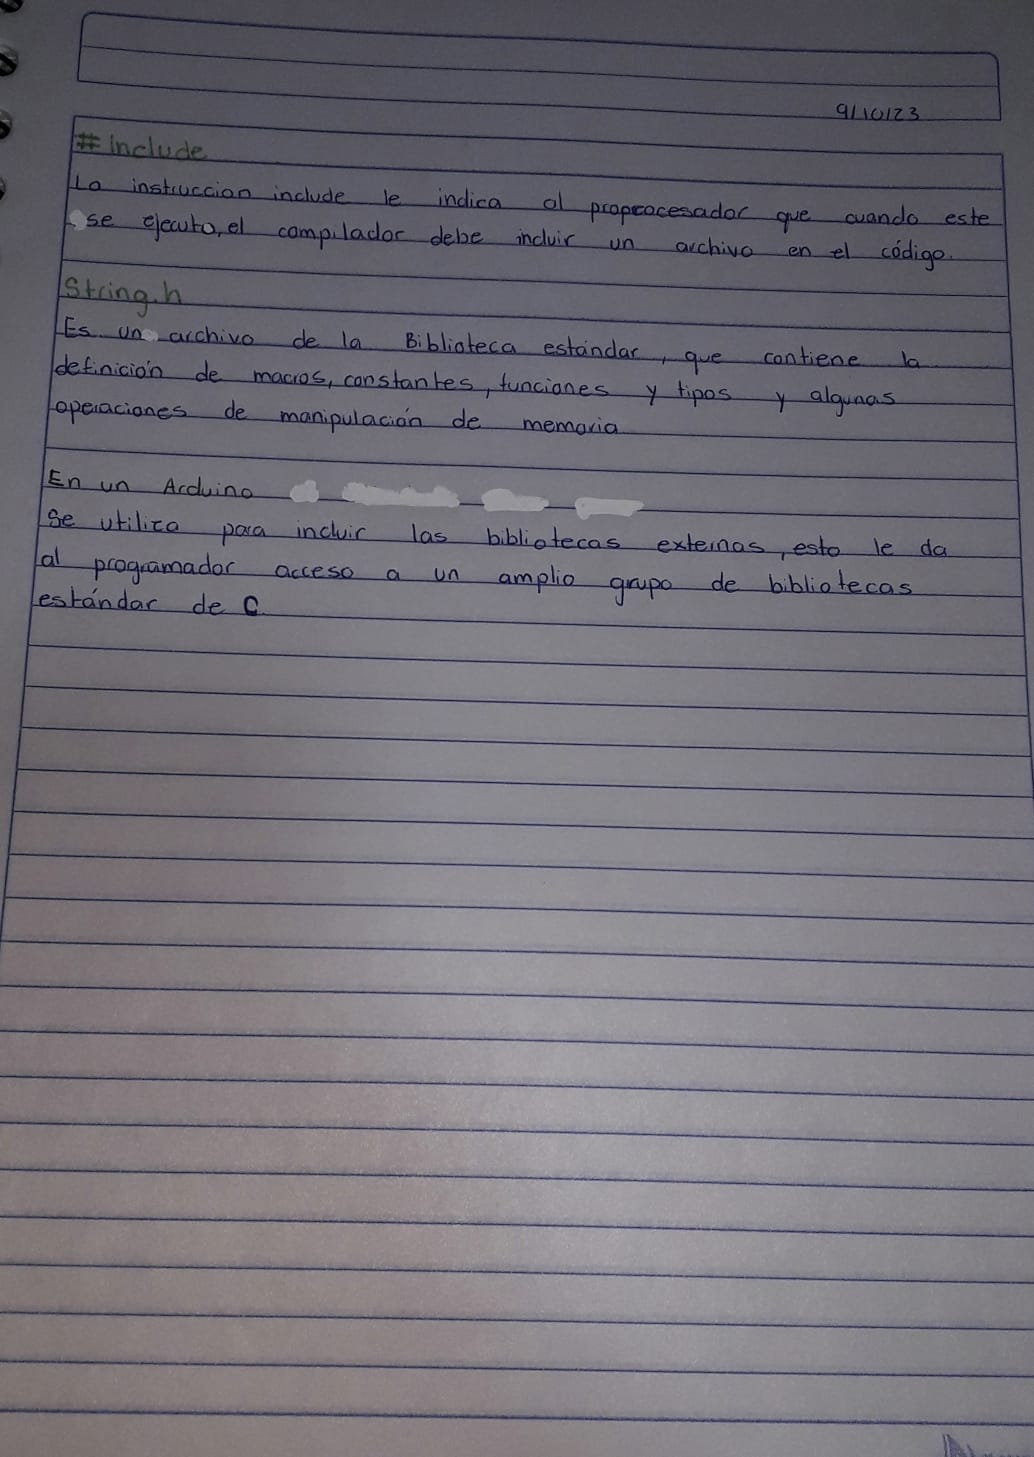 9/10/23
# Include
La instruccion include le indica al proprocesador que cuando este
se ejecuto, el compilador debe incluir un archivo en el código.
String.h
Es un archivo de la Biblioteca estandar, que contiene la
definición de macros, constantes, funciones y tipos y algunas
operaciones de manipulación de memoria
En un Arduino
Se utiliza para incluir las bibliotecas externas, esto le da
al programador acceso a un amplio grupo de bibliotecas
estándar de C.